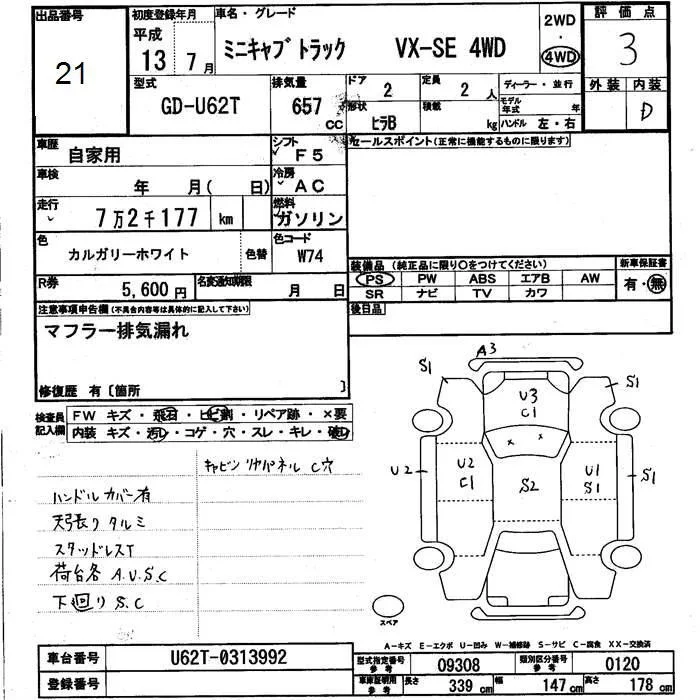 出品番号
21
初度登録年月
平成
13 7月
車名・グレード
ミニキャブトラック VX-SE 4WD
2WD
・
4WD
評価点
3
外装 内装
D
型式
GD-U62T
排気量
657 CC
ドア
2
定員
2 人
形状
ヒラB
積載
kg
ディーラー・並行
モデル年式 年
ハンドル 左・右
車歴
自家用
シフト
F5
車検
年 月( 日)
冷房
AC
走行
7万2千177 km
燃料
ガソリン
色
カルガリーホワイト
色替
色コード
W74
R券
5,600円
名変通知期限
月 日
セールスポイント(正常に機能するものに限ります)
装備品(純正品に限り○をつけてください)
PS PW ABS エアB AW
SR ナビ TV カワ
新車保証書
有・無
後日品
注意事項申告欄(不具合内容等は具体的に記入して下さい)
マフラー排気漏れ
修復歴 有〔箇所 〕
検査員記入欄
FW キズ・飛石・ヒビ割・リペア跡・×要
内装 キズ・汚れ・コゲ・穴・スレ・キレ・破れ
キャビンリヤパネル C穴
ハンドルカバー有
天張りタルミ
スタッドレスT
荷台各 A.U.S.C
下回り S.C
A3
S1 S1
U3
C1
× ×
U2 U2
C1
S2
U1
S1
S1
スペア
A-キズ E-エクボ U-凹み W-補修跡 S-サビ C-腐食 XX-交換済
車台番号 U62T-0313992
登録番号
型式指定番号参考 09308
類別区分番号参考 0120
車庫証明用参考 長さ 339cm 幅 147cm 高さ 178cm